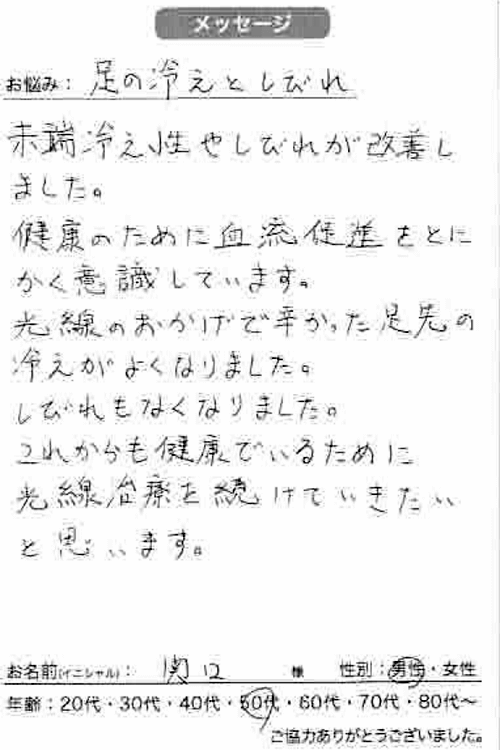 メッセージ
お悩み: 足の冷えとしびれ
末端冷え性やしびれが改善し
ました。
健康のために血流促進をとに
かく意識しています。
光線のおかげで辛かった足先の
冷えがよくなりました。
しびれもなくなりました。
これからも健康でいるために
光線治療を続けていきたい
と思います。
お名前(イニシャル): 関口 様 性別:男性・女性
年齢:20代・30代・40代・50代・60代・70代・80代〜
ご協力ありがとうございました。